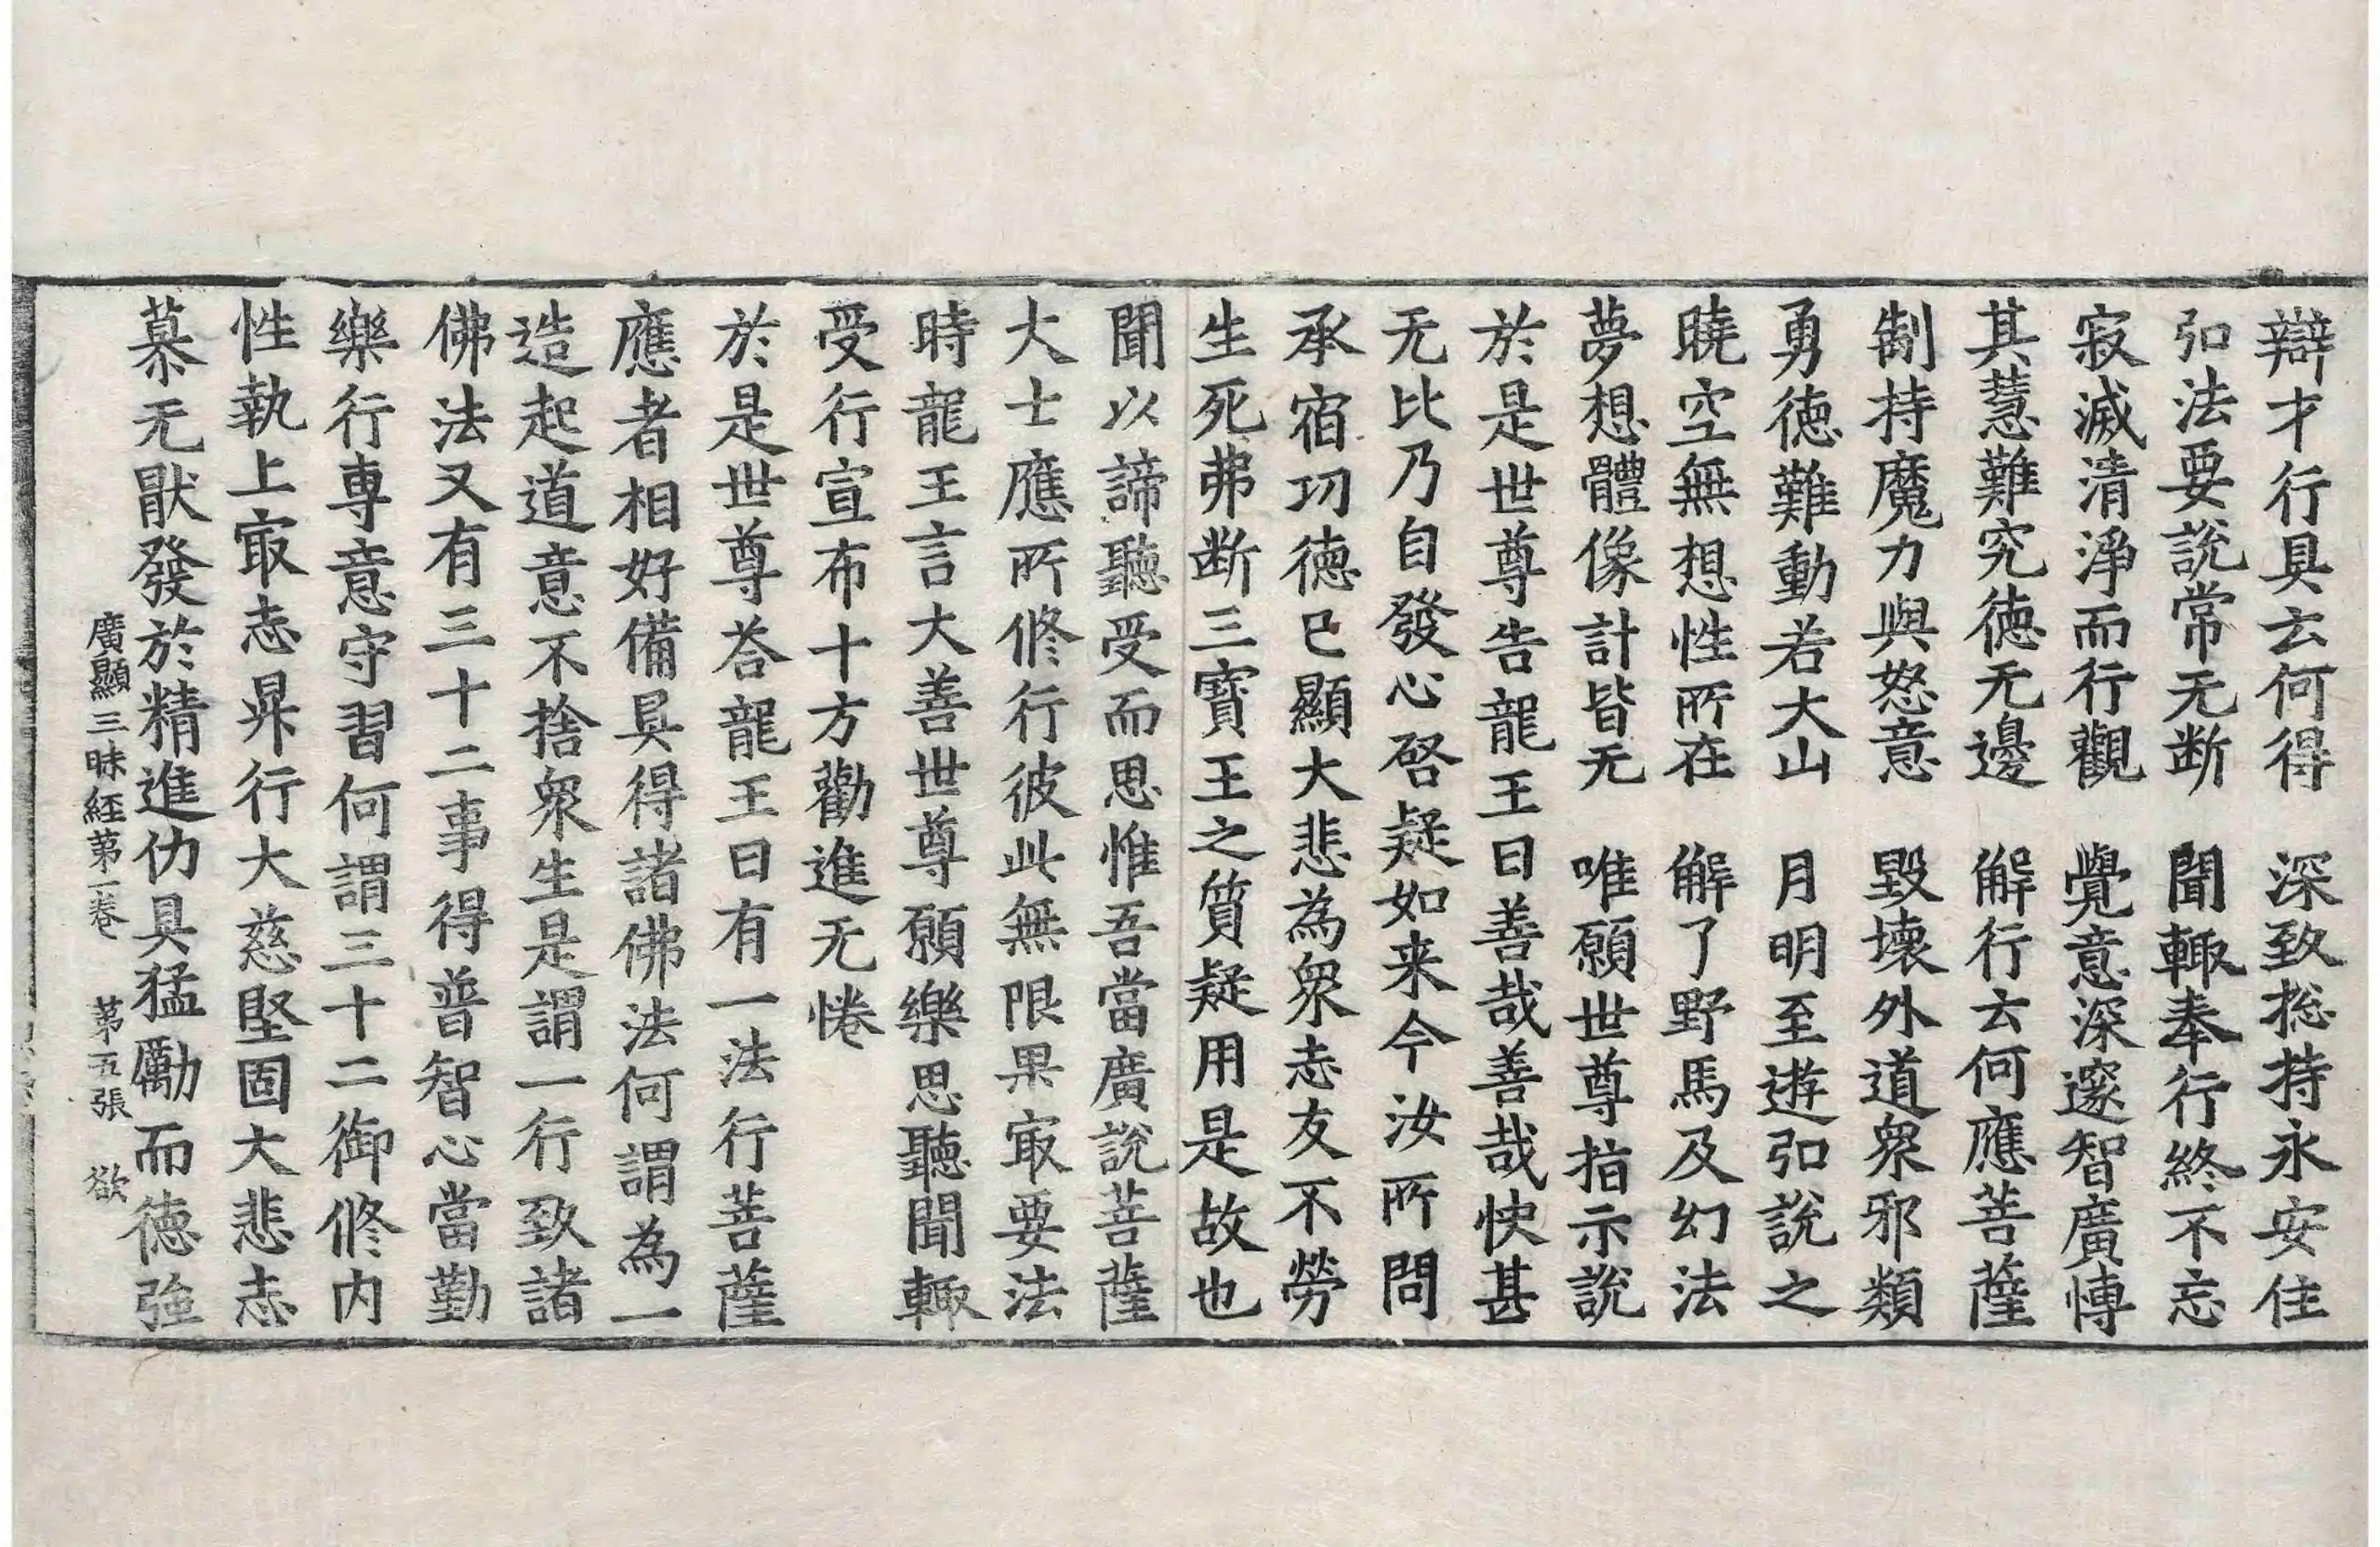 辯才行具去何得　深致捴持永安住
弘法要說常无断　聞輙奉行終不忘
寂滅清淨而行觀　覺意深邃智廣愽
其慧難究徳无邊　解行去何應菩薩
制持魔力與怒意　毀壞外道衆邪類
勇徳難動若大山　月明至逰弘說之
曉空無想性所在　解了野馬及幻法
夢想體像計皆无　唯願世尊指示說
於是世尊告龍王曰善哉善哉快甚
无比乃自發心啓疑如来今汝所問
承宿功德已顯大悲為衆志友不勞
生死弗断三寶王之質疑用是故也
聞以諦聽受而思惟吾當廣說菩薩
大士應所修行彼此無限果寂要法
時龍王言大善世尊願樂思聽聞輙
受行宣布十方勸進无惓
於是世尊荅龍王曰有一法行菩薩
應者相好備具得諸佛法何謂為一
造起道意不捨衆生是謂一行致諸
佛法又有三十二事得普智心當勤
樂行專意守習何謂三十二御修内
性執上㝡志昇行大慈堅固大悲志
慕无猒發於精進仂具猛勵而徳強
廣顯三昧經苐一卷　苐五張　欲